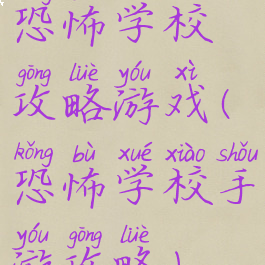 恐怖学校
gōng lüè yóu xì
攻略游戏(
kǒng bù xué xiào shǒu
恐怖学校手
yóu gōng lüè
游攻略)